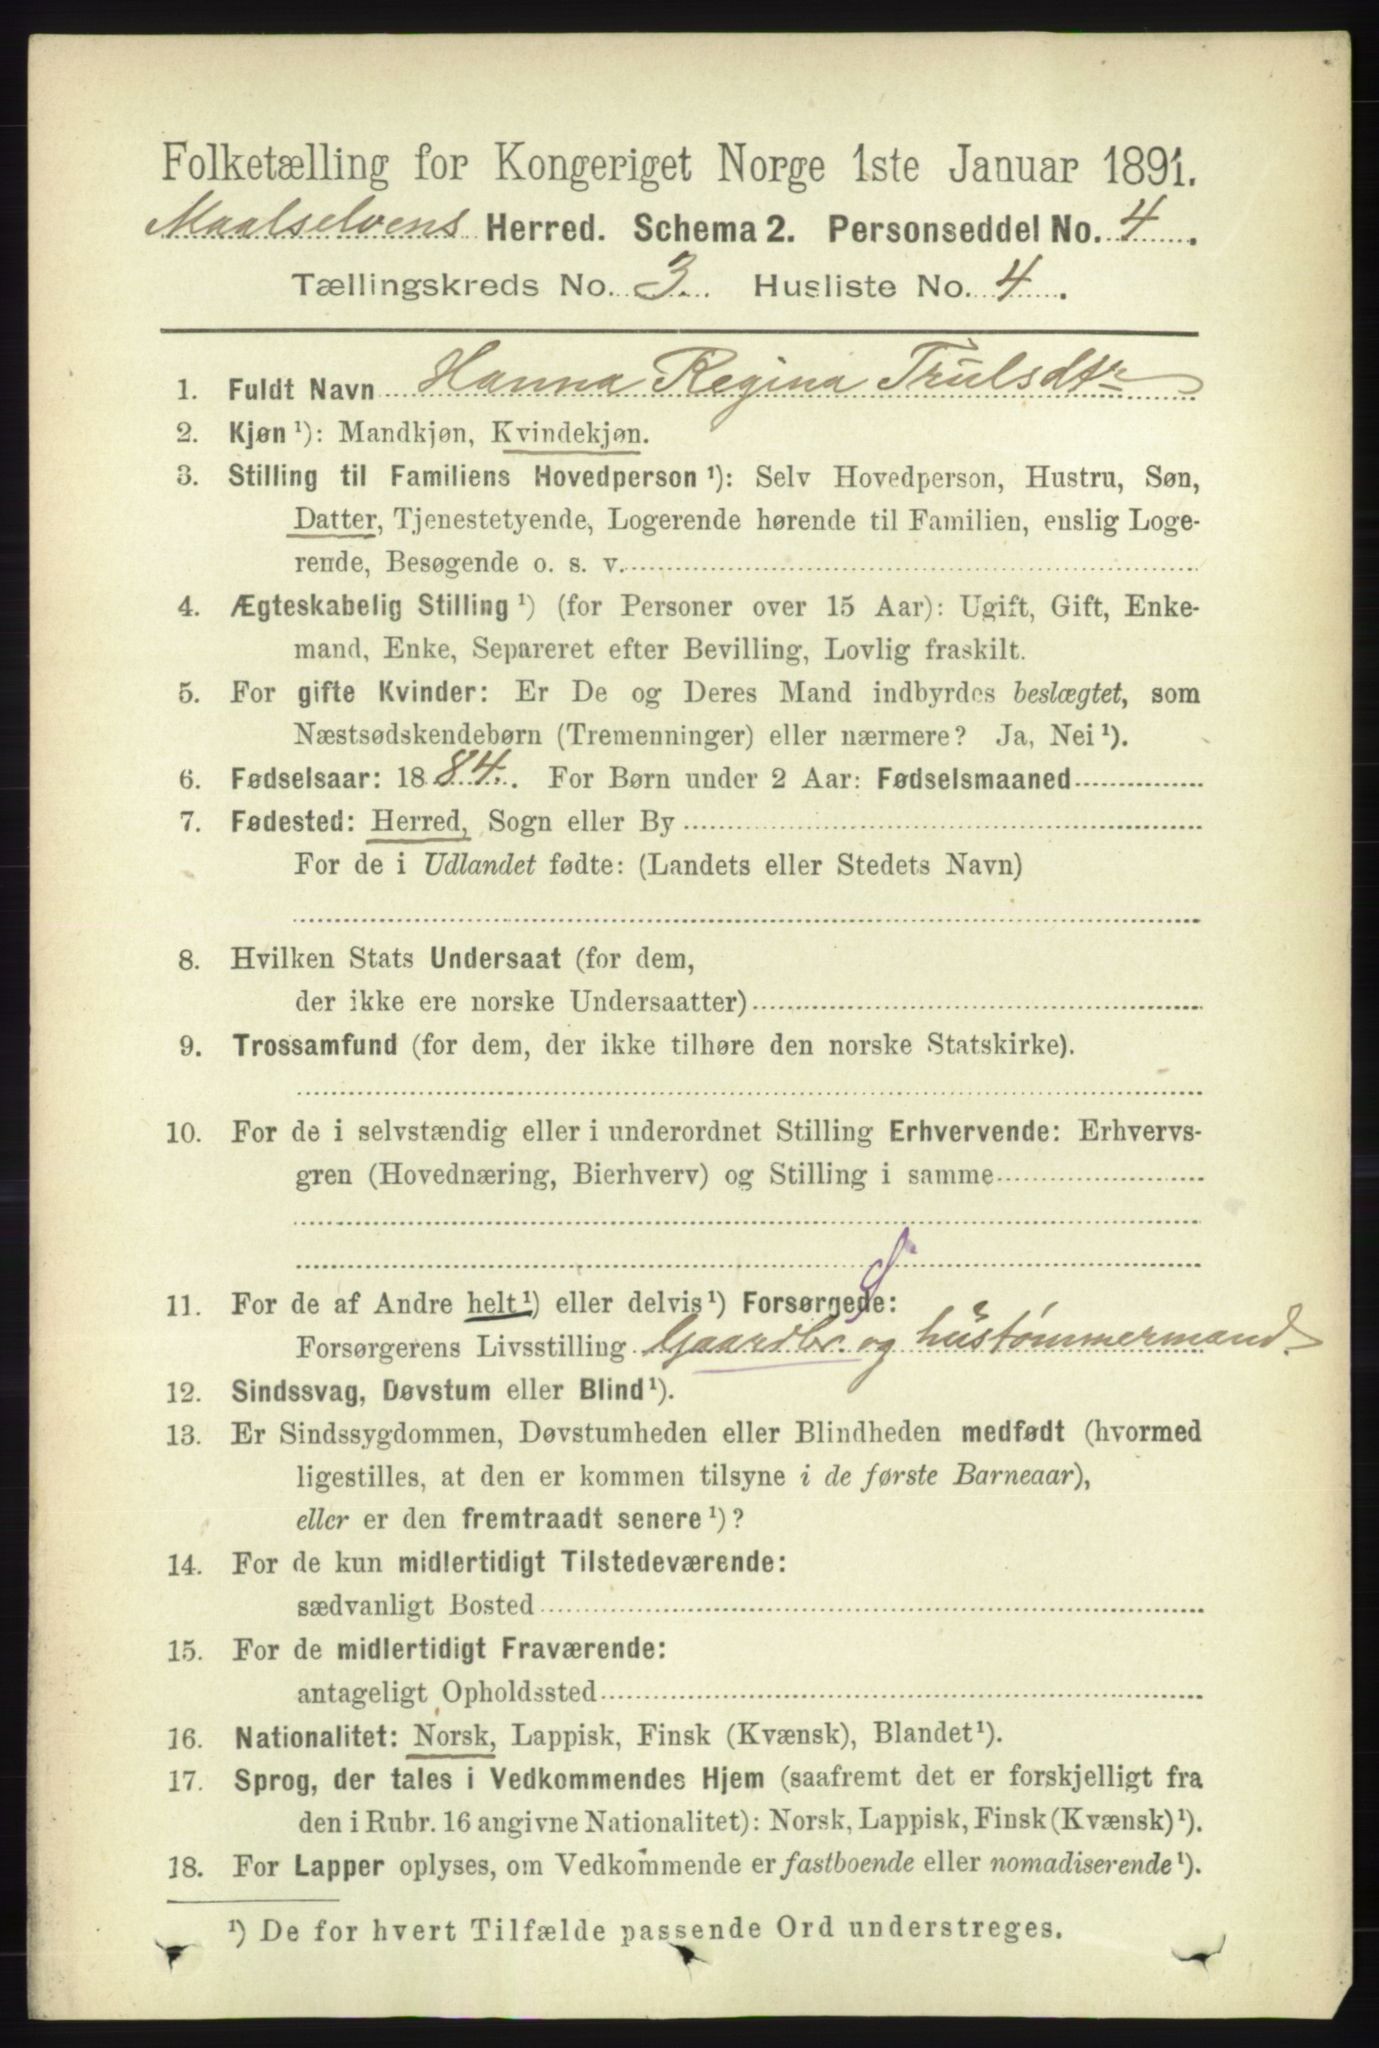 Folketælling for Kongeriget Norge 1ste Januar 1891.
Maalselvens Herred. Schema 2. Personseddel No. 4.
Tællingskreds No. 3. Husliste No. 4.
1. Fuldt Navn Hanna Regina Trulsdtr
2. Kjøn ¹): Mandkjøn, Kvindekjøn.
3. Stilling til Familiens Hovedperson ¹): Selv Hovedperson, Hustru, Søn,
Datter, Tjenestetyende, Logerende hørende til Familien, enslig Loge-
rende, Besøgende o. s. v.
4. Ægteskabelig Stilling ¹) (for Personer over 15 Aar): Ugift, Gift, Enke-
mand, Enke, Separeret efter Bevilling, Lovlig fraskilt.
5. For gifte Kvinder: Er De og Deres Mand indbyrdes beslægtet, som
Næstsødskendebørn (Tremenninger) eller nærmere? Ja, Nei ¹).
6. Fødselsaar: 1884. For Børn under 2 Aar: Fødselsmaaned
7. Fødested: Herred, Sogn eller By
For de i Udlandet fødte: (Landets eller Stedets Navn)
8. Hvilken Stats Undersaat (for dem,
der ikke ere norske Undersaatter)
9. Trossamfund (for dem, der ikke tilhøre den norske Statskirke).
10. For de i selvstændig eller i underordnet Stilling Erhvervende: Erhvervs-
gren (Hovednæring, Bierhverv) og Stilling i samme
11. For de af Andre helt ¹) eller delvis ¹) Forsørgede:
Forsørgerens Livsstilling Gaardbr. og hustømmermand.
12. Sindssvag, Døvstum eller Blind ¹).
13. Er Sindssygdommen, Døvstumheden eller Blindheden medfødt (hvormed
ligestilles, at den er kommen tilsyne i de første Barneaar),
eller er den fremtraadt senere ¹)?
14. For de kun midlertidigt Tilstedeværende:
sædvanligt Bosted
15. For de midlertidigt Fraværende:
antageligt Opholdssted
16. Nationalitet: Norsk, Lappisk, Finsk (Kvænsk), Blandet ¹).
17. Sprog, der tales i Vedkommendes Hjem (saafremt det er forskjelligt fra
den i Rubr. 16 angivne Nationalitet): Norsk, Lappisk, Finsk (Kvænsk) ¹).
18. For Lapper oplyses, om Vedkommende er fastboende eller nomadiserende ¹).
¹) De for hvert Tilfælde passende Ord understreges.